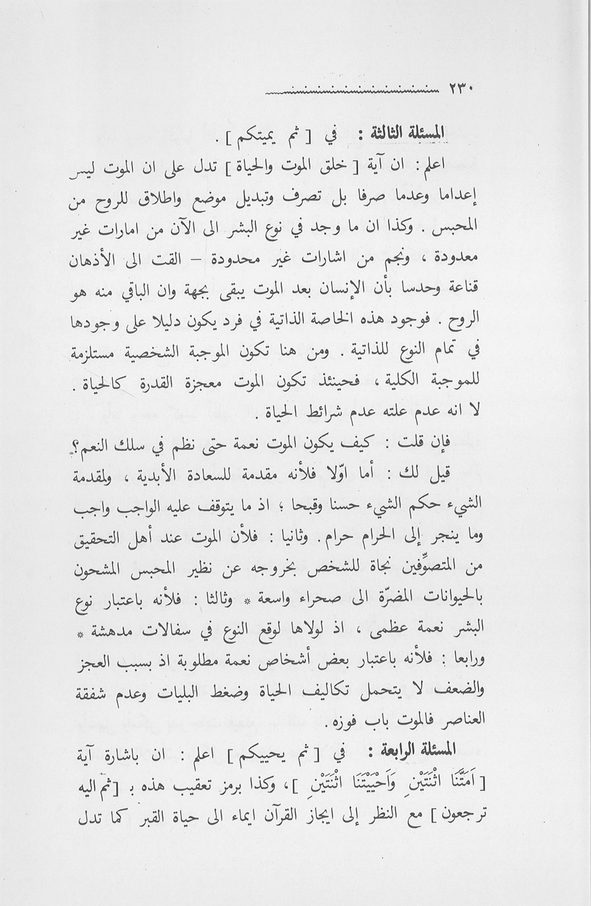 ٢٣٠
المسئلة الثالثة : في [ ثم يميتكم ] .
اعلم : ان آية [ خلق الموت والحياة ] تدل على ان الموت ليس
إعداما وعدما صرفا بل تصرف وتبديل موضع واطلاق للروح من
المحبس . وكذا ان ما وجد في نوع البشر الى الآن من امارات غير
معدودة ، ونجم من اشارات غير محدودة – القت الى الأذهان
قناعة وحدسا بأن الإنسان بعد الموت يبقى بجهة وان الباقي منه هو
الروح . فوجود هذه الخاصة الذاتية في فرد يكون دليلا على وجودها
في تمام النوع للذاتية . ومن هنا تكون الموجبة الشخصية مستلزمة
للموجبة الكلية ، فحينئذ تكون الموت معجزة القدرة كالحياة .
لا انه عدم علته عدم شرائط الحياة .
فإن قلت : كيف يكون الموت نعمة حتى نظم في سلك النعم ؟
قيل لك : أما اوّلا فلأنه مقدمة للسعادة الأبدية ، ولمقدمة
الشيء حكم الشيء حسنا وقبحا ؛ اذ ما يتوقف عليه الواجب واجب
وما ينجر إلى الحرام حرام . وثانيا : فلأن الموت عند أهل التحقيق
من المتصوِّفين نجاة للشخص بخروجه عن نظير المحبس المشحون
بالحيوانات المضرّة الى صحراء واسعة * وثالثا : فلأنه باعتبار نوع
البشر نعمة عظمى ، اذ لولاها لوقع النوع في سفالات مدهشة *
ورابعا : فلأنه باعتبار بعض أشخاص نعمة مطلوبة اذ بسبب العجز
والضعف لا يتحمل تكاليف الحياة وضغط البليات وعدم شفقة
العناصر فالموت باب فوزه .
المسئلة الرابعة : في [ ثم يحييكم ] اعلم : ان باشارة آية
[ اَمَتَّنَا اثْنَتَيْنِ وَاَحْيَيْتَنَا اثْنَتَيْنِ ] ، وكذا برمز تعقيب هذه بـ [ ثم اليه
ترجعون ] مع النظر إلى ايجاز القرآن ايماء الى حياة القبر كما تدل